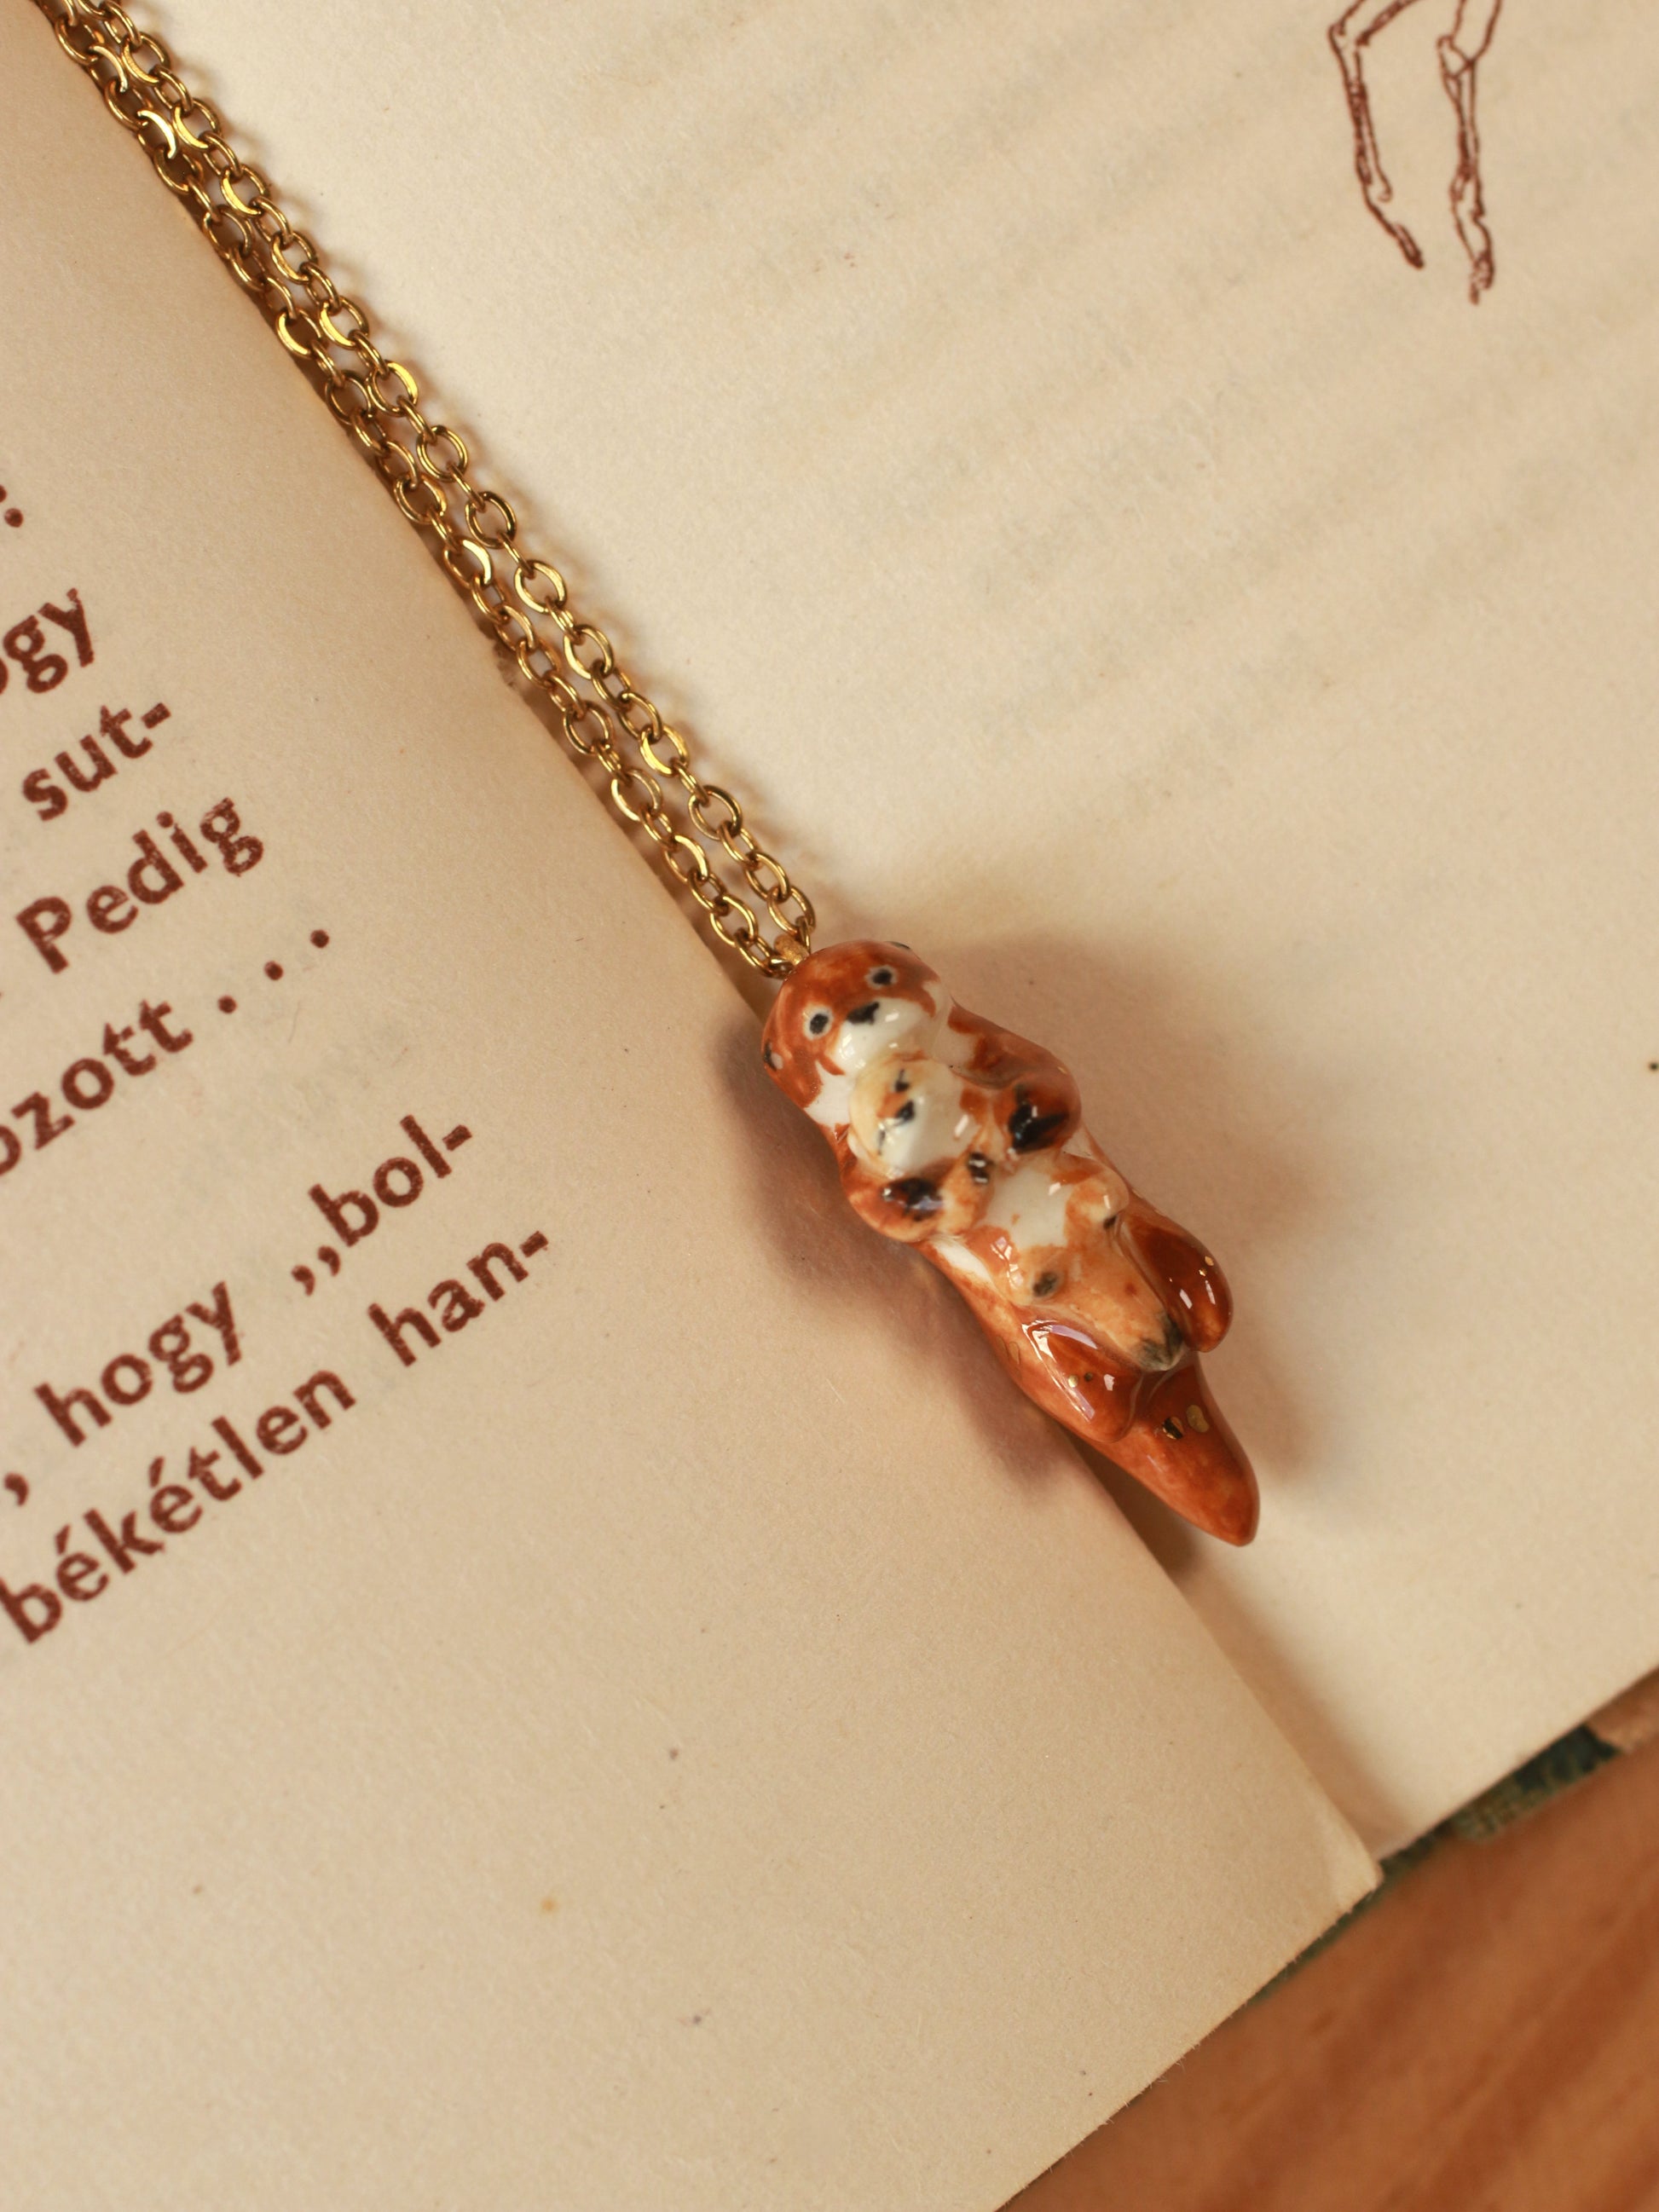 :
sut-
Pedig
ozott . . .
, hogy „bol-
békétlen han-